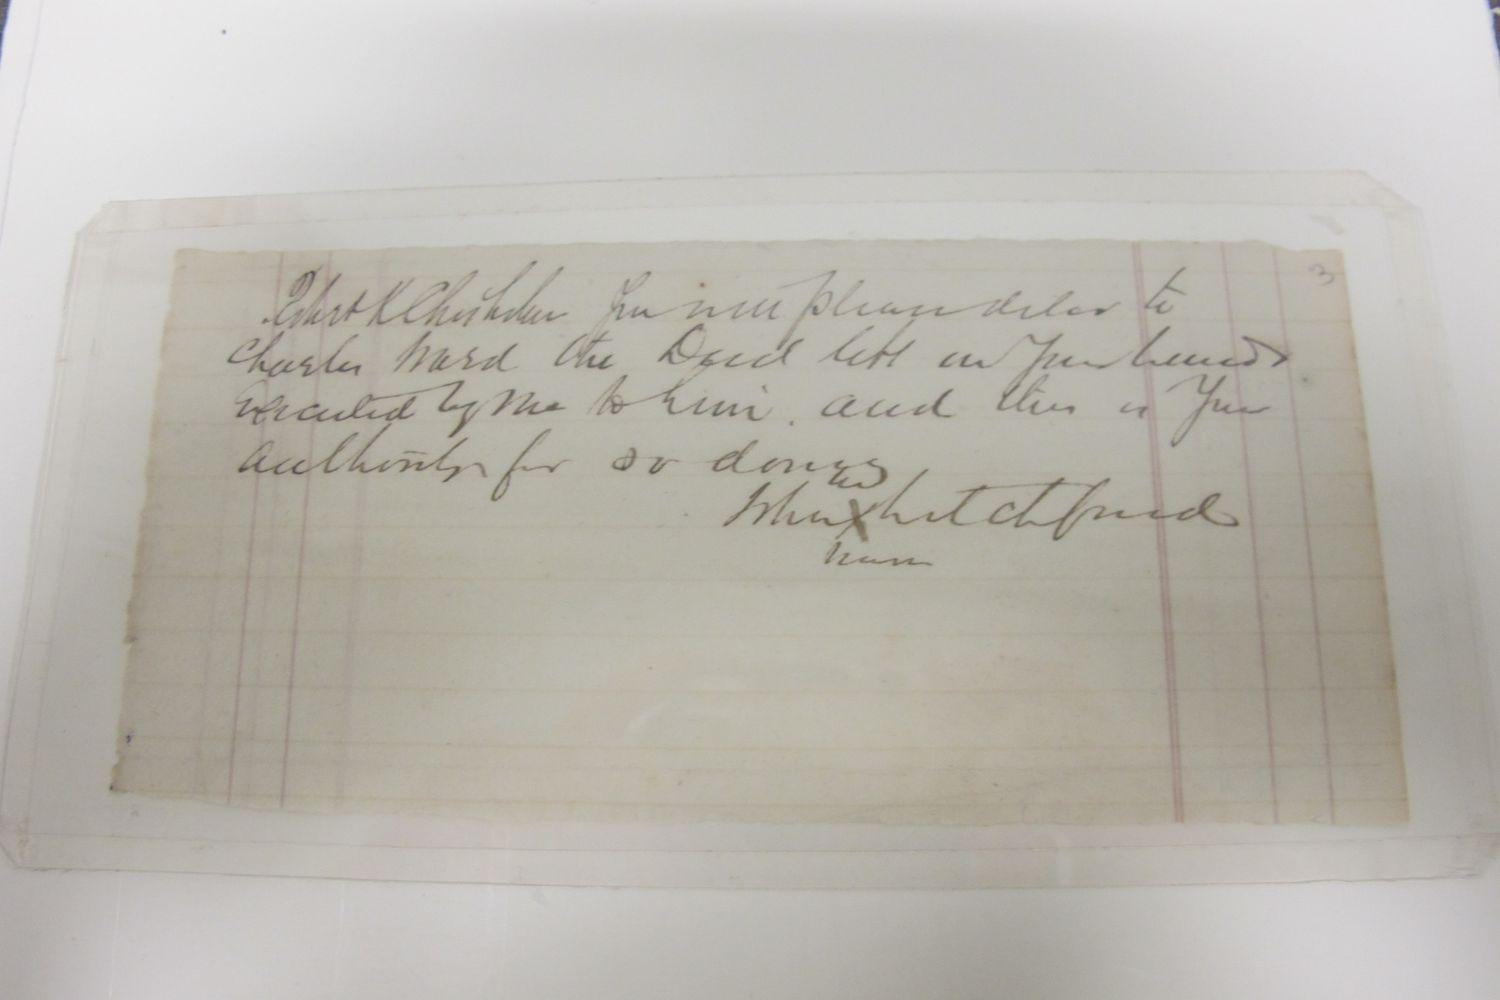 3
Robert K you will please deliver to
Charles Ward the Deed left in your hands
Executed by me to him. and this is your
authority for so doing
his
John X
mark